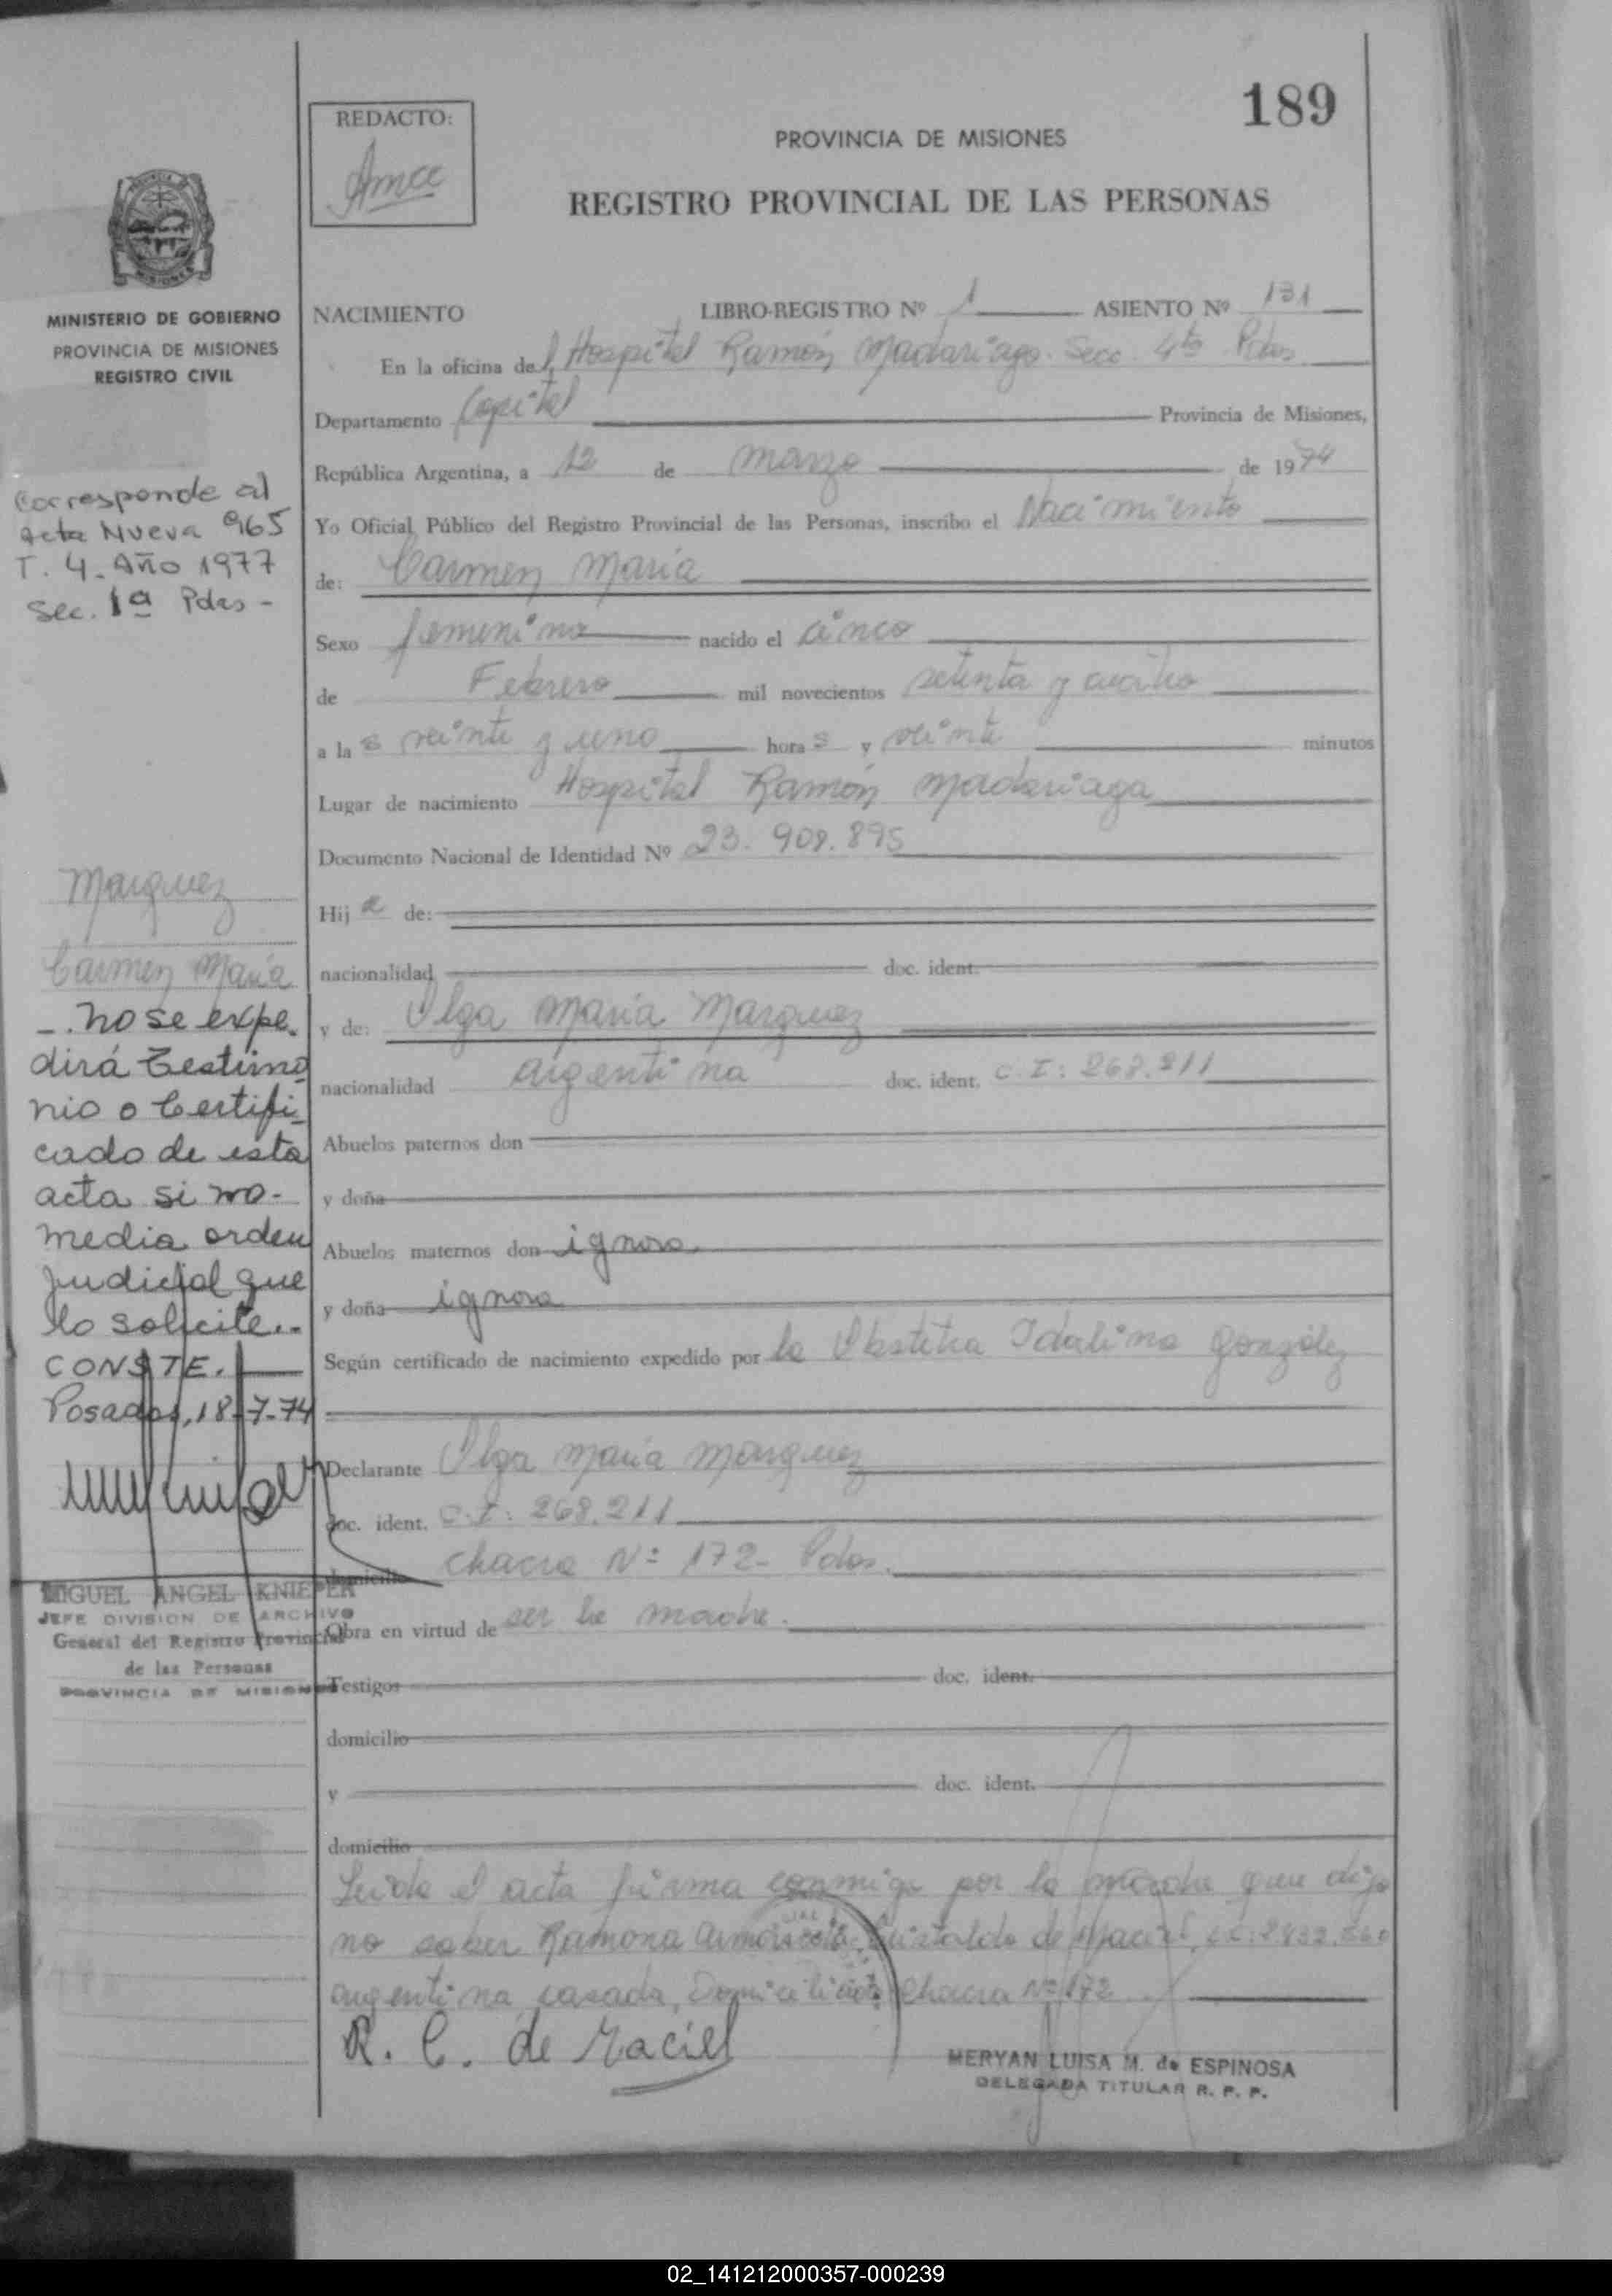 189
REDACTO:
PROVINCIA DE MISIONES
REGISTRO PROVINCIAL DE LAS PERSONAS
MINISTERIO DE GOBIERNO
PROVINCIA DE MISIONES
REGISTRO CIVIL
Corresponde al
acta Nueva 965
T. 4. Año 1977
Sec. 1ª Pdas -
Marquez
Carmen María
-. no se expe-
dirá Testimo
nio o Certifi
cado de esta
acta si no-
media orden
judicial que
lo solicite..
CONSTE.
Posadas, 18-7-74
MIGUEL ANGEL KNIEPER
JEFE DIVISION DE ARCHIVO
General del Registro Provincial
de las Personas
PROVINCIA DE MISIONES
NACIMIENTO LIBRO-REGISTRO Nº 1 ASIENTO Nº 131
En la oficina del Hospital Ramón Madariaga. Secc. 4ta Pdas
Departamento Capital Provincia de Misiones,
República Argentina, a 12 de marzo de 1974
Yo Oficial Público del Registro Provincial de las Personas, inscribo el Nacimiento
de: Carmen María
Sexo femenino nacido el cinco
de Febrero mil novecientos setenta y cuatro
a las veinte y uno horas y veinte minutos
Lugar de nacimiento Hospital Ramón Madariaga
Documento Nacional de Identidad Nº 23.908.895
Hija de:
nacionalidad doc. ident.
y de: Olga María Marquez
nacionalidad argentina doc. ident. C.I: 268.211
Abuelos paternos don
y doña
Abuelos maternos don ignora
y doña ignora
Según certificado de nacimiento expedido por la Obstetra Idalina González
Declarante Olga María Marquez
doc. ident. C.I: 268.211
domicilio Chacra Nº 172- Pdas.
Obra en virtud de ser la madre.
Testigos doc. ident.
domicilio
y doc. ident.
domicilio
Leída el acta firma conmigo por la madre que dijo
no saber Ramona de Maciel
argentina, casada, Domiciliada Chacra Nº 172
R. C. de Maciel
MERYAN LUISA M. de ESPINOSA
DELEGADA TITULAR R. P. P.
02_141212000357-000239